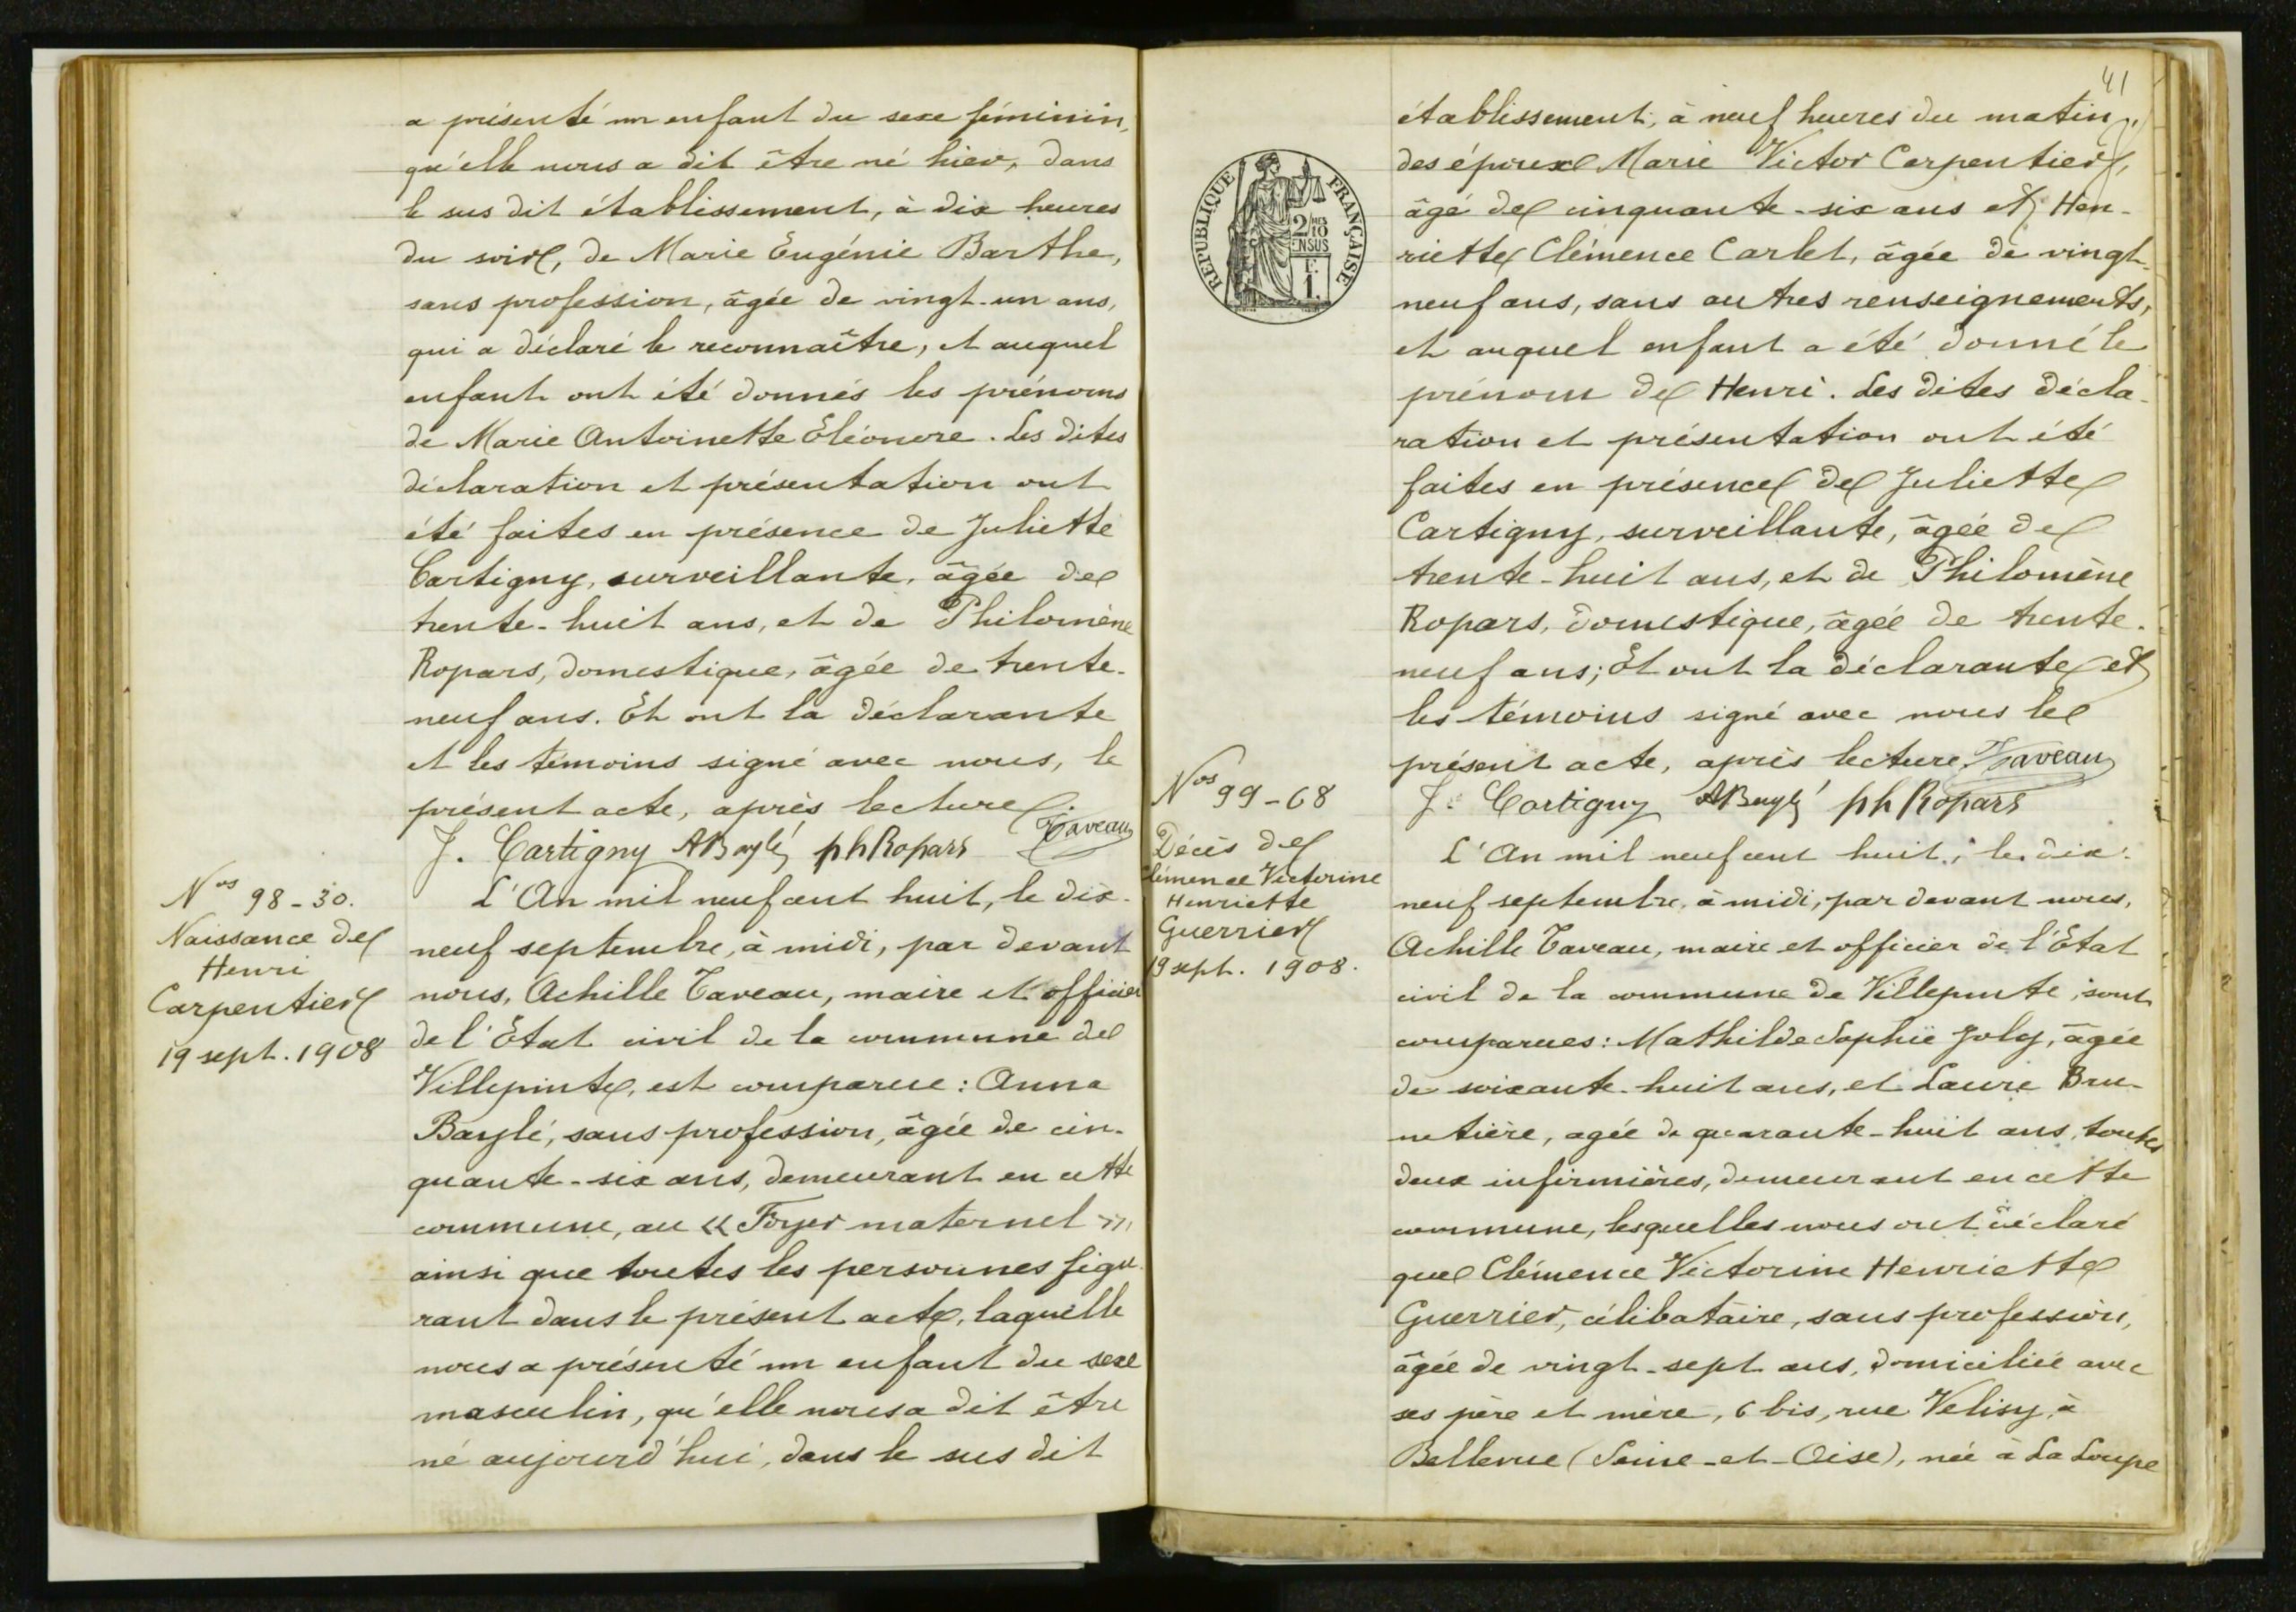 a présenté un enfant du sexe féminin,
qu'elle nous a dit être né hier, dans
le sus dit établissement, à dix heures
du soir, de Marie Eugénie Barthe,
sans profession, âgée de vingt-un ans,
qui a déclaré le reconnaître, et auquel
enfant ont été donnés les prénoms
de Marie Antoinette Eléonore. Les dites
déclaration et présentation ont
été faites en présence de Juliette
Cartigny, surveillante, âgée de
trente-huit ans, et de Philomène
Ropars, domestique, âgée de trente-
neuf ans. Et ont la déclarante
et les témoins signé avec nous, le
présent acte, après lecture.
J. Cartigny ABaylé phRopars Taveau
Nos 98-30.
Naissance de
Henri
Carpentier
19 sept. 1908
L'An mil neuf cent huit, le dix-
neuf septembre, à midi, par devant
nous, Achille Taveau, maire et officier
de l'Etat civil de la commune de
Villepinte, est comparue : Anna
Baylé, sans profession, âgée de cin-
quante-six ans, demeurant en cette
commune, au « Foyer maternel »,
ainsi que toutes les personnes figu-
rant dans le présent acte, laquelle
nous a présenté un enfant du sexe
masculin, qu'elle nous a dit être
né aujourd'hui, dans le sus dit
41
REPUBLIQUE FRANÇAISE
2/10
EN SUS
1F.
établissement, à neuf heures du matin,
des époux Marie Victor Carpentier,
âgé de cinquante-six ans et Hen-
riette Clémence Carlet, âgée de vingt-
neuf ans, sans autres renseignements,
et auquel enfant a été donné le
prénom de Henri. Les dites décla-
ration et présentation ont été
faites en présence de Juliette
Cartigny, surveillante, âgée de
trente-huit ans, et de Philomène
Ropars, domestique, âgée de trente-
neuf ans; Et ont la déclarante et
les témoins signé avec nous le
présent acte, après lecture. Taveau
J. Cartigny ABaylé ph Ropars
Nos 99-68
Décès de
Clémence Victorine
Henriette
Guerrier
19 sept. 1908.
L'An mil neuf cent huit, le dix-
neuf septembre, à midi, par devant nous,
Achille Taveau, maire et officier de l'Etat
civil de la commune de Villepinte, sont
comparues : Mathilde Sophie Joly, âgée
de soixante-huit ans, et Laure Bru-
netière, agée de quarante-huit ans, toutes
deux infirmières, demeurant en cette
commune, lesquelles nous ont déclaré
que Clémence Victorine Henriette
Guerrier, célibataire, sans profession,
âgée de vingt-sept ans, domiciliée avec
ses père et mère, 6 bis, rue Velisy, à
Bellevue (Seine-et-Oise), née à La Loupe